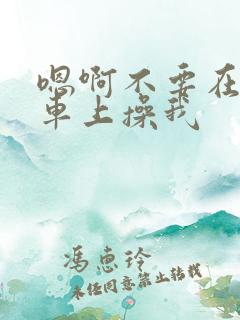 嗯啊不要在
車上操我
馮惠玲
未经同意禁止转载